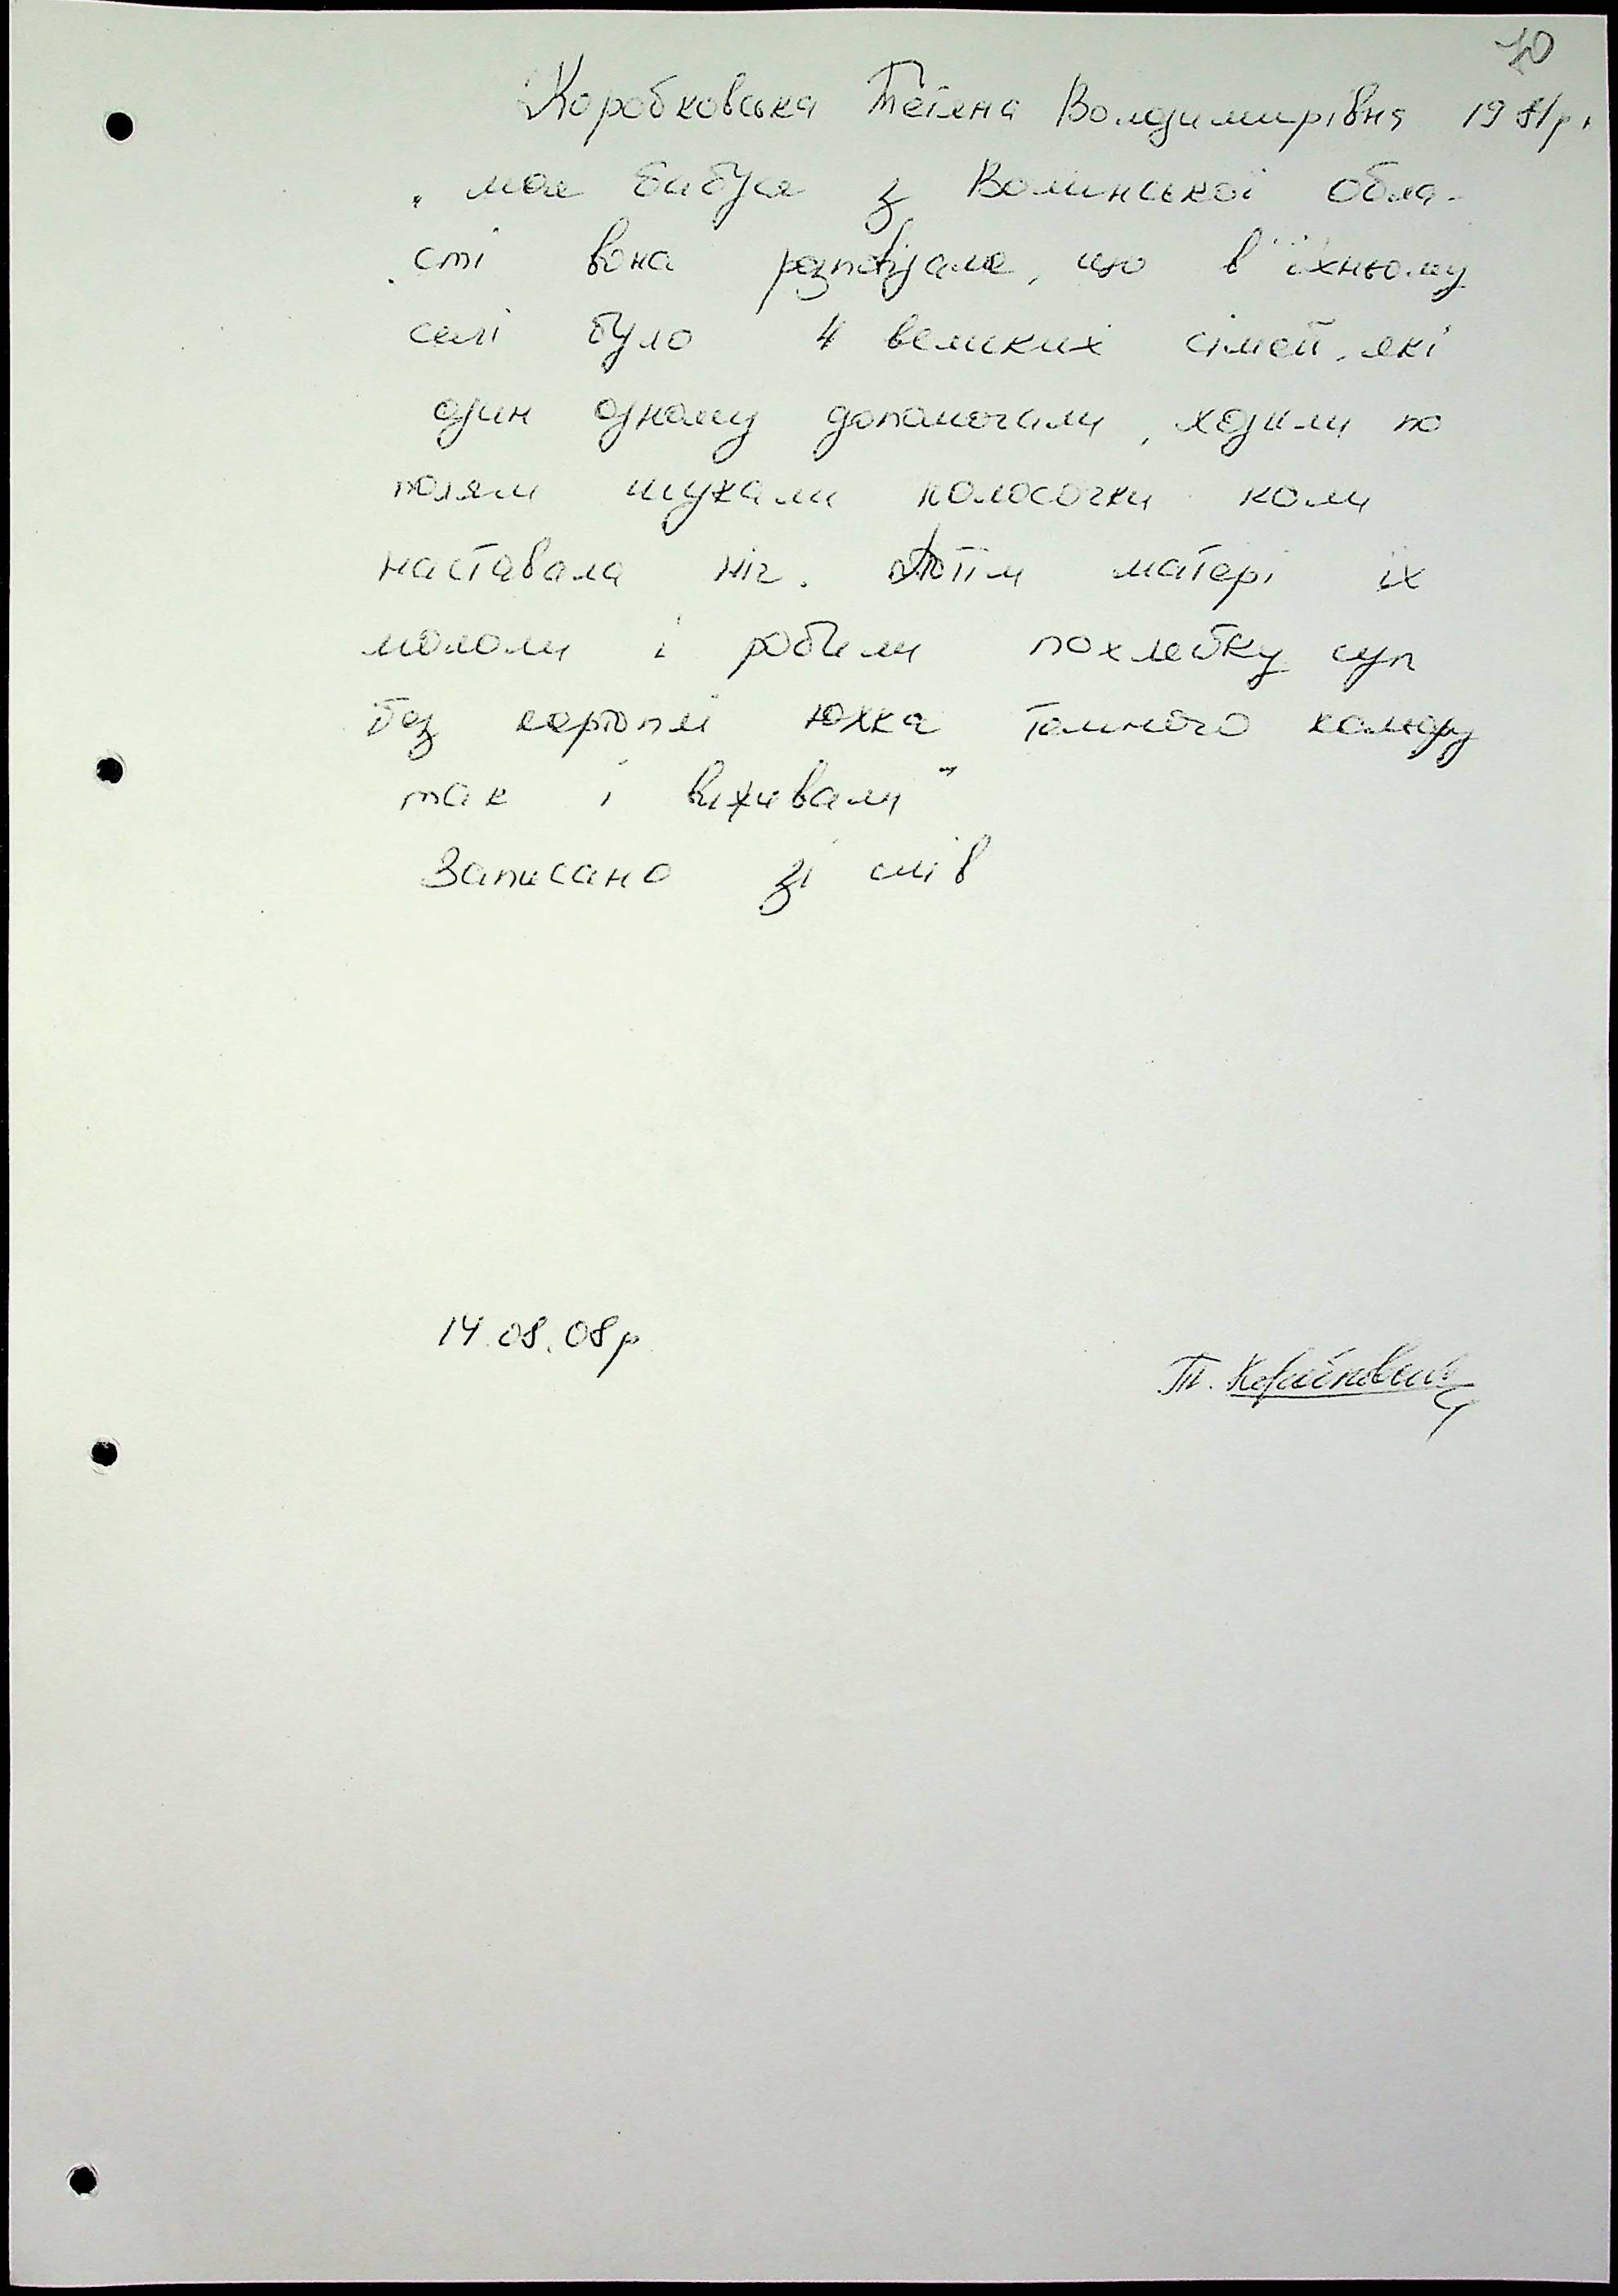 10
Коробковська Тетяна Володимирівна 1981р.
"моя бабуся з Волинської обла-
сті вона розповідала, що в їхньому
селі було 4 великих сімей, які
один одному допомагали, ходили по
полям шукали колосочки коли
наставала ніч. Потім матері їх
мололи і робили похлебку суп
без картоплі юхка темного кольору
так і виживали"
Записано зі слів
14.08.08р
Т. Коробковська